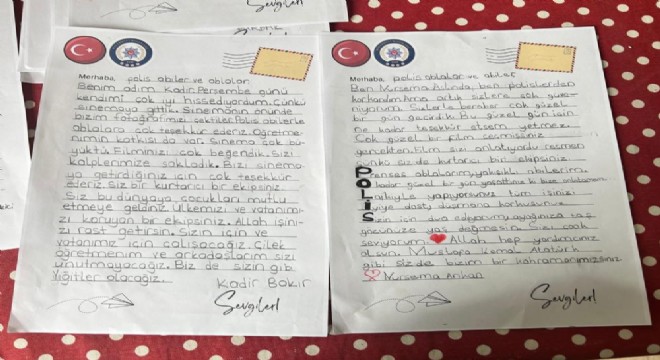 Merhaba, polis abiler ve ablalar
Benim adım Kadir. Perşembe günü
kendimi çok iyi hissediyordum. Çünkü
sinemaya gittik. Sinemanın önünde
bizim fotoğrafımızı çektiler. Polis abilerle
ablalara çok teşekkür ederiz. Öğretme-
nimin katkısı da var. Sinema çok bü-
yüktü. Filminizi çok beğendik. Sizi
kalplerimize sakladık. Bizi sinema
ya getirdiğiniz için çok teşekkür
ederiz. Siz bir kurtarıcı bir ekipsiniz.
Siz bu dünyaya çocukları mutlu
etmeye geldiniz. Ülkemizi ve vatanımı-
zı koruyan bir ekipsiniz. Allah işini-
zi rast getirsin. Sizin için ve
vatanımız için çalışacağız. Çilek
öğretmenim ve arkadaşlarım sizi
unutmayacağız. Biz de sizin gibi
yiğitler olacağız.
Kadir Bakır
Sevgiler!
Merhaba, polis ablalar ve abiler
Ben Nursema Aslında, ben polislerden
korkardım ama artık sizlere çok güve-
niyorum. Sizlerle beraber çok güzel
bir gün geçirdik. Bu güzel gün için
ne kadar teşekkür etsem yetmez.
Çok güzel bir film seçmişsiniz
gerçekten. Film sizi anlatıyordu resmen
çünkü sizde kurtarıcı bir ekipsiniz.
Prenses ablalarım, yakışıklı abilerim.
O kadar güzel bir gün yaşattınız ki bize
yapıyorsunuz tüm işinizi.
düşmana korkusunuz
Sizin için dua ediyorum, ayağınıza taş
gözünüze yaş değmesin. Sizi çok
seviyorum. Allah hep yardımcınız
olsun. Mustafa Kemal Atatürk
gibi sizde bizim bir kahramanımızsınız
Nursema Arıkan
POLİS
Sevgiler!